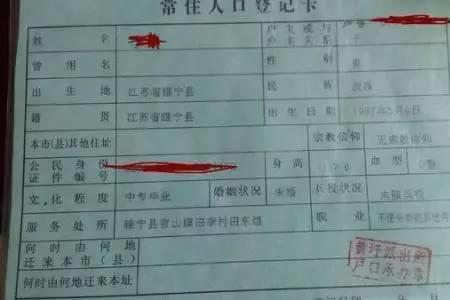 常住人口登记卡
姓名 户主或与户主关系 子
曾用名 性别 男
出生地 江苏省睢宁县 民族 汉族
籍贯 江苏省睢宁县 出生日期 1987年5月6日
本市(县)其他住址 宗教信仰 无宗教信仰
公民身份证件编号 身高 170 血型
文化程度 中专毕业 婚姻状况 未婚 兵役状况 未服兵役
服务处所 睢宁县官山镇田李村田东组 职业
何时由何地迁来本市(县)
何时由何地迁来本址
派出所
户口承办章